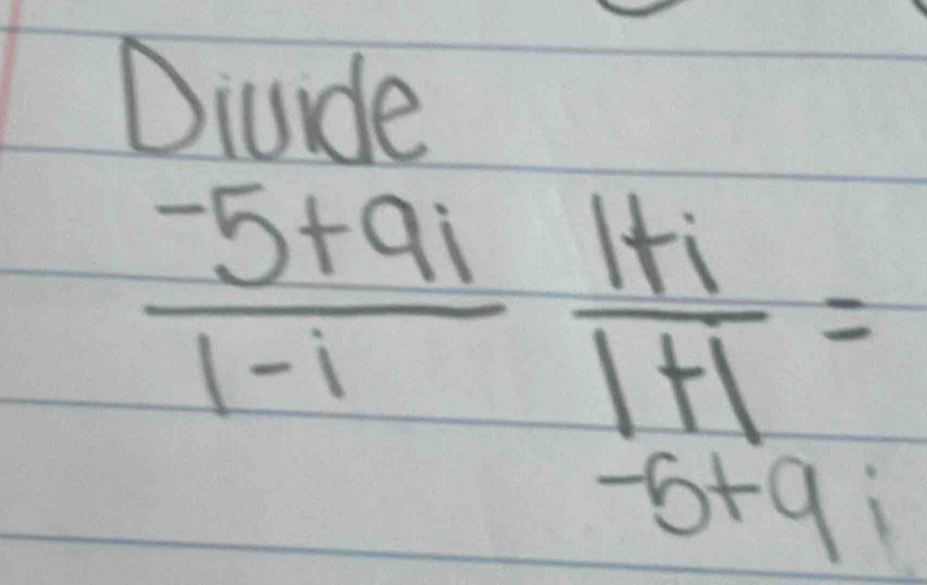 Divide
-5+9i 1+i
1-i 1+i =
-5+9i